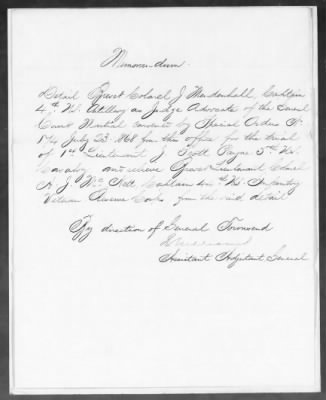 Memorandum.
Detail Brevet Colonel J. Mendenhall, Captain
4th U.S. Artillery as Judge Advocate of the General
Court Martial convened by Special Orders No.
174 July 23. 1868 from this office for the trial
of 1st Lieutenant J. Scott Payne 5th U.S.
Cavalry and relieve Brevet Lieutenant Colonel
A. J. Mc Nett Captain U.S. Infantry
Veteran Reserve Corps from the said detail.
By direction of General Townsend
Assistant Adjutant General